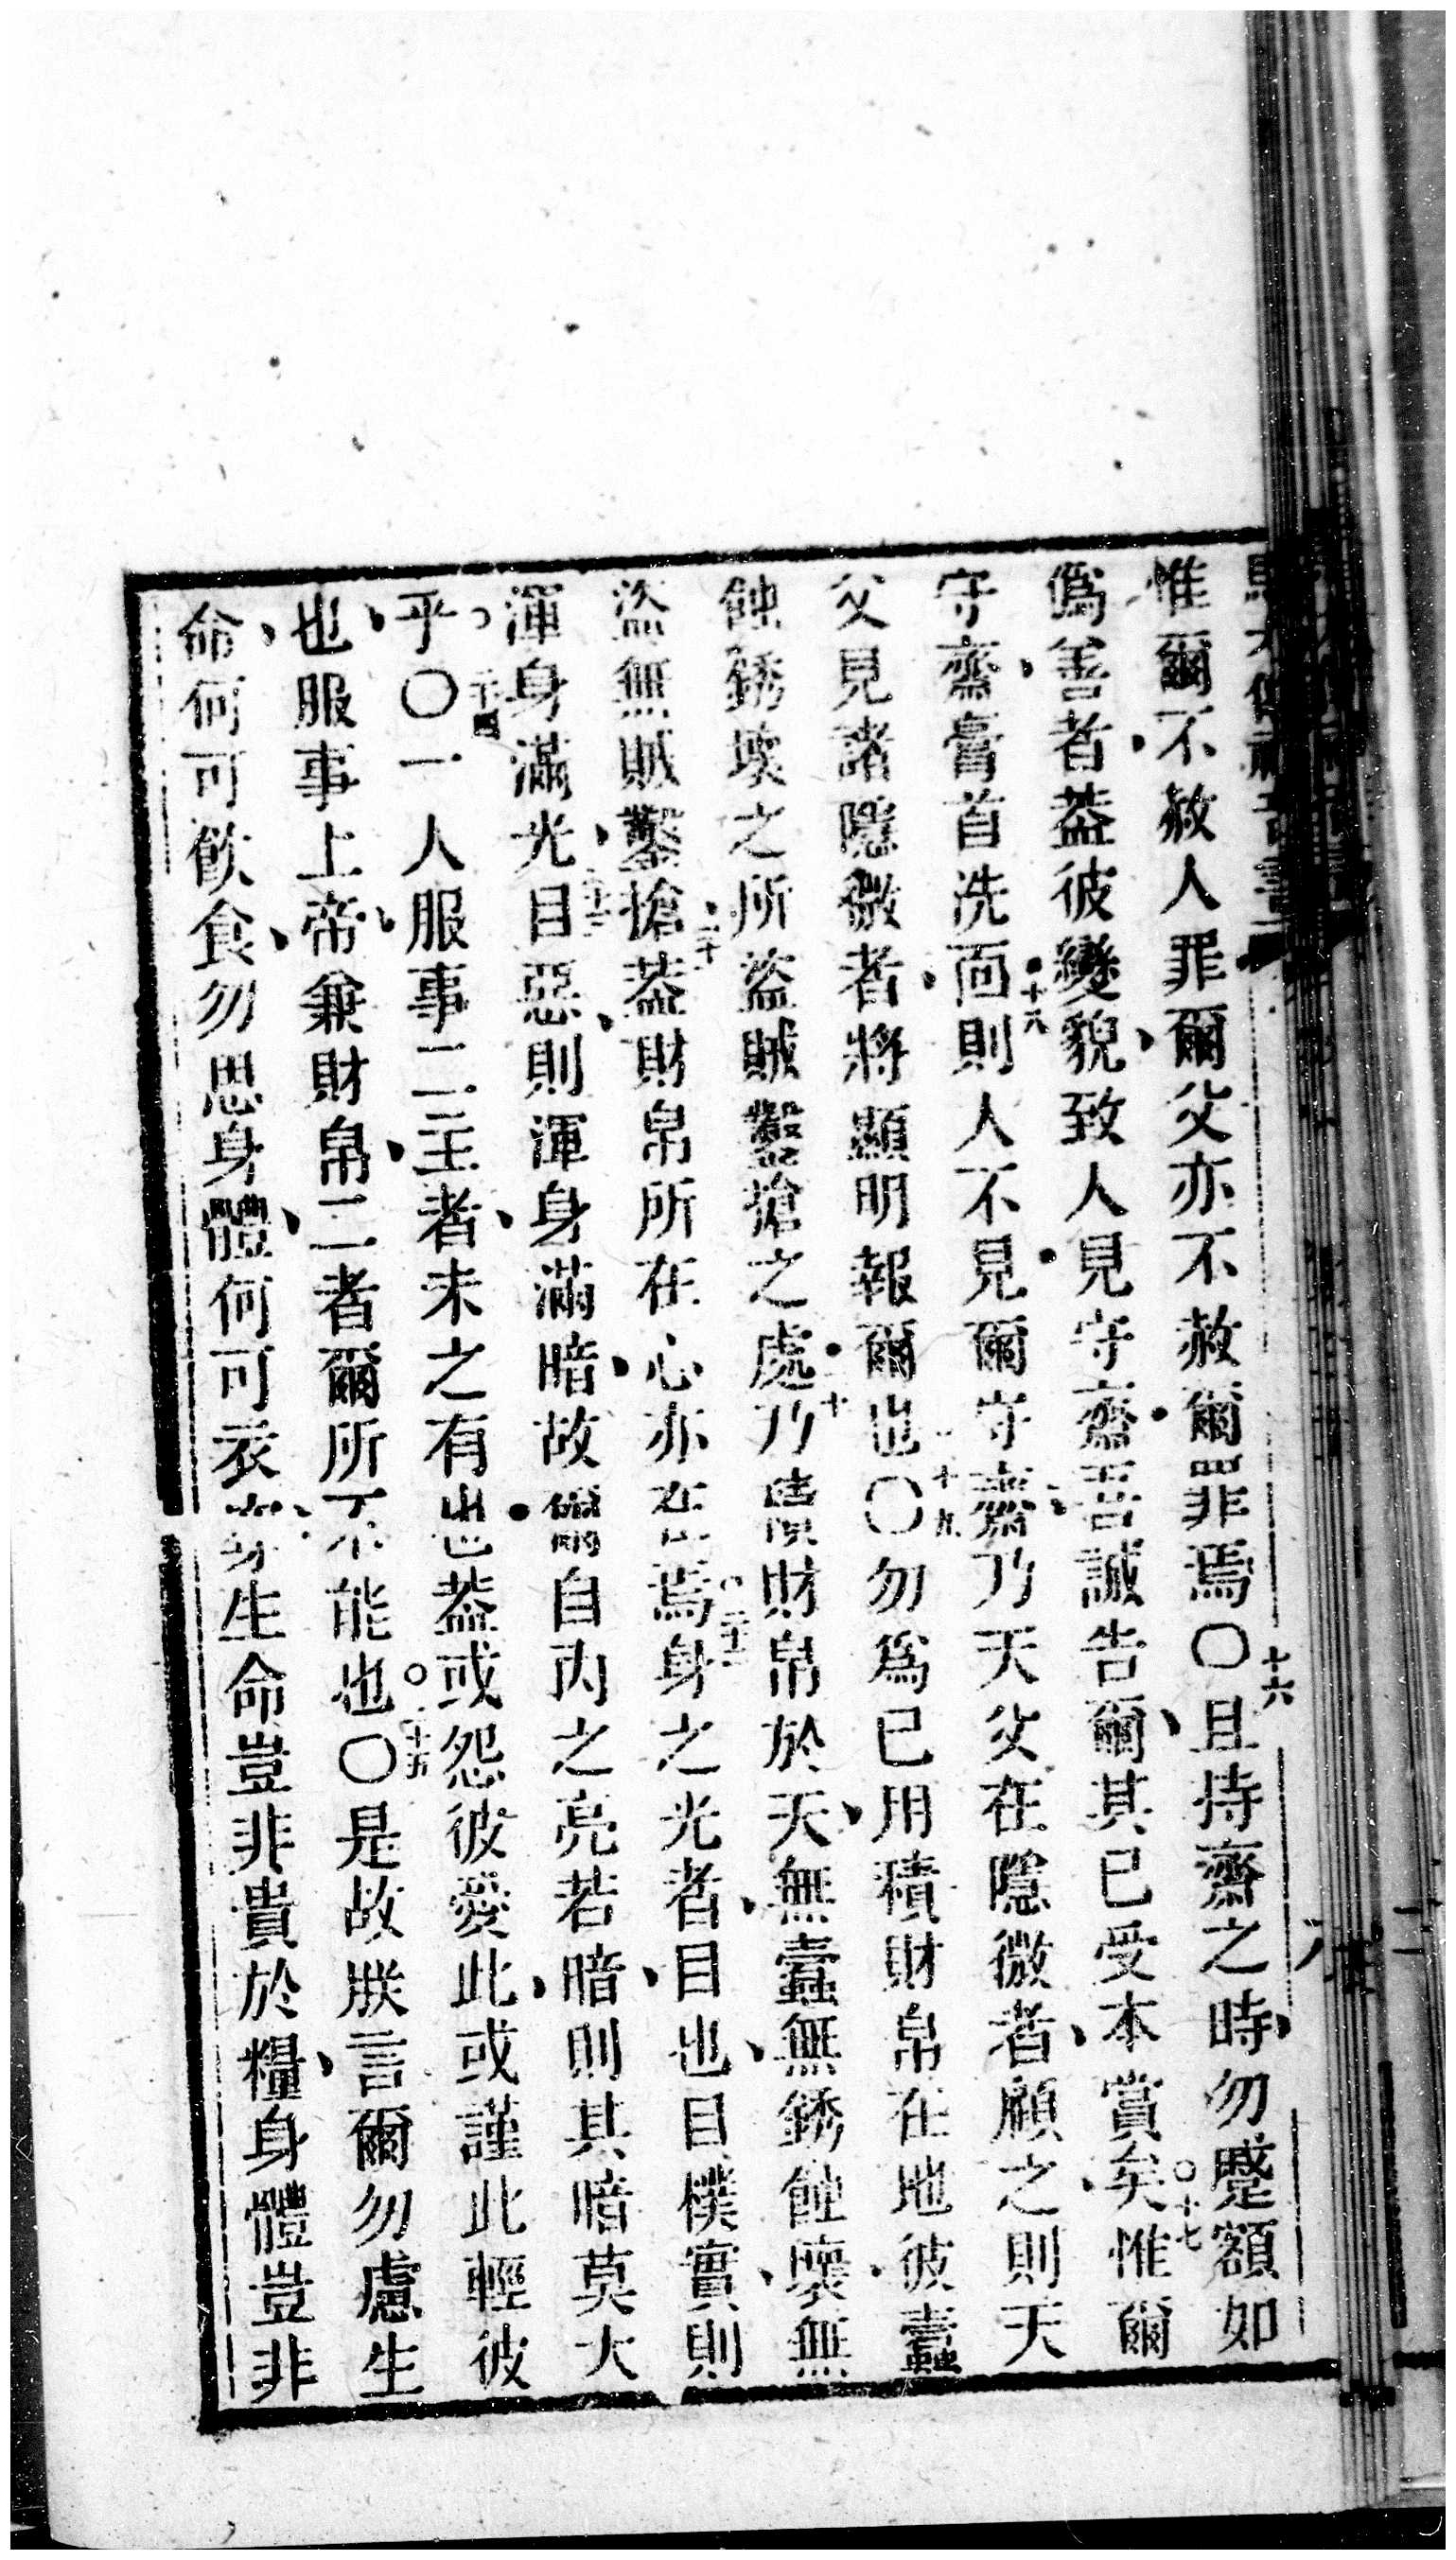 惟爾不赦人罪爾父亦不赦爾罪焉〇十六且持齋之時、勿蹙額如
偽善者、葢彼變貌、致人見守齋・吾誠告爾、其已受本賞矣、〇十七惟爾
守齋、膏首洗面・十八則人不見・爾守齋、乃天父在隱微者、顧之、則天
父見諸隱微者、將顯明報爾也〇十九勿為已用積財帛在地彼蠹
蝕銹壞之所盜賊鑿搶之處・二十乃積財帛於天、無蠹無銹蝕壞、無
盜無賊鑿搶、二十一葢財帛所在心亦在焉〇二十二身之光者、目也、目樸實、則
渾身滿光、二十三目惡、則渾身滿暗、故爾自內之亮若暗、則其暗莫大
乎〇二十四一人服事二主者、未之有也・葢或怨彼愛此、或謹此輕彼
也、服事上帝、兼財帛、二者爾所不能也〇二十五是故朕言爾勿慮生
命、何可飲食、勿思身體、何可衣穿、生命豈非貴於糧、身體豈非